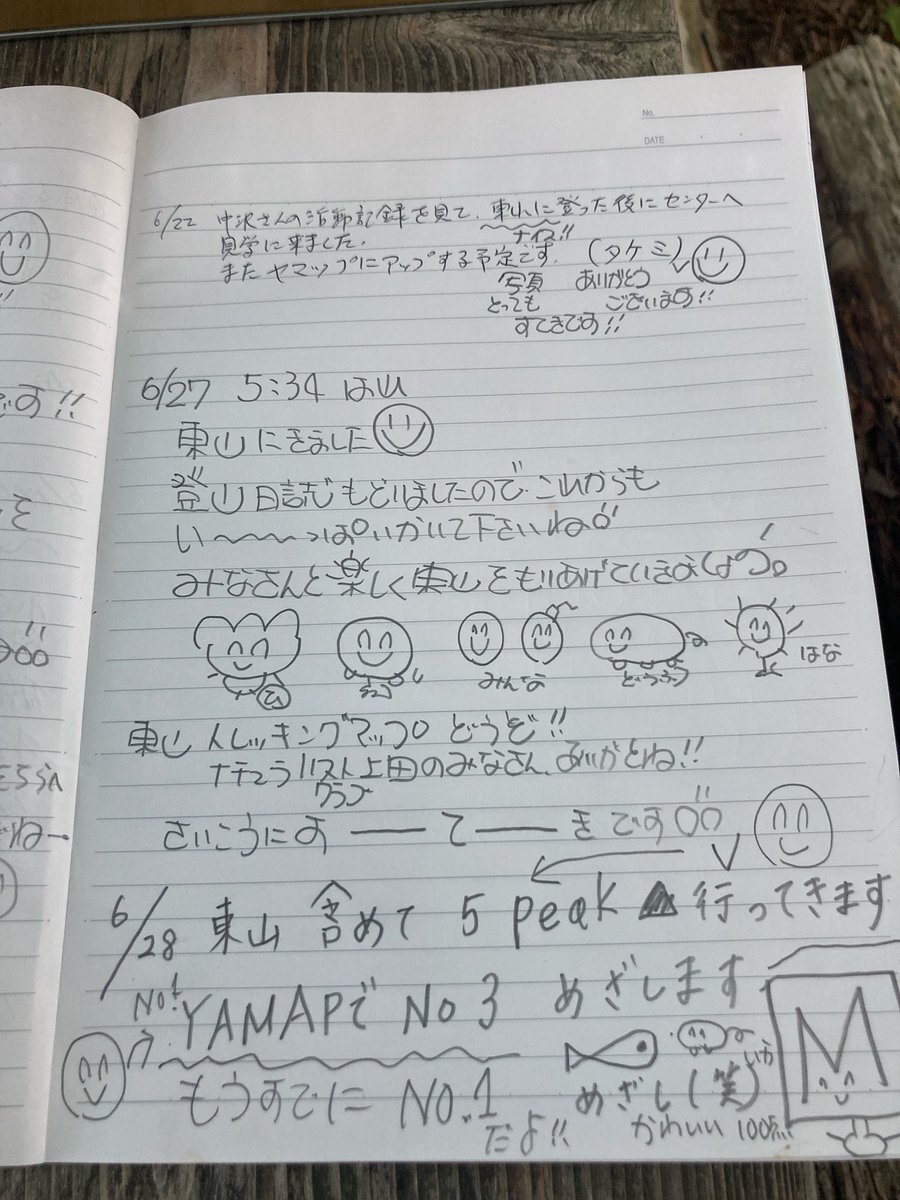 No.
DATE
6/22 中沢さんの活動記録を見て、東山に登った後にセンターへ
見学に来ました.
ナイス!!
またヤマップにアップする予定です. (タケミ)
写真 ありがとう
とっても ございます!!
すてきです!!
6/27 5:34 はれ
東山にきました
登山日誌もどりましたので、これからも
い〜〜〜っぱいかいて下さいね
みなさんと楽しく東山をもりあげていきましょう。
みんな
はな
東山トレッキングマップ どうぞ!!
ナチュラリスト上田のみなさん、ありがとね!!
クラブ
さいこうにす――て――きです
6/28 東山 含めて 5 peak 行ってきます
No!
YAMAPで No 3 めざします
もうすでに NO.1 めざし(笑)
だよ!! かわいい 100点!
M
です!!